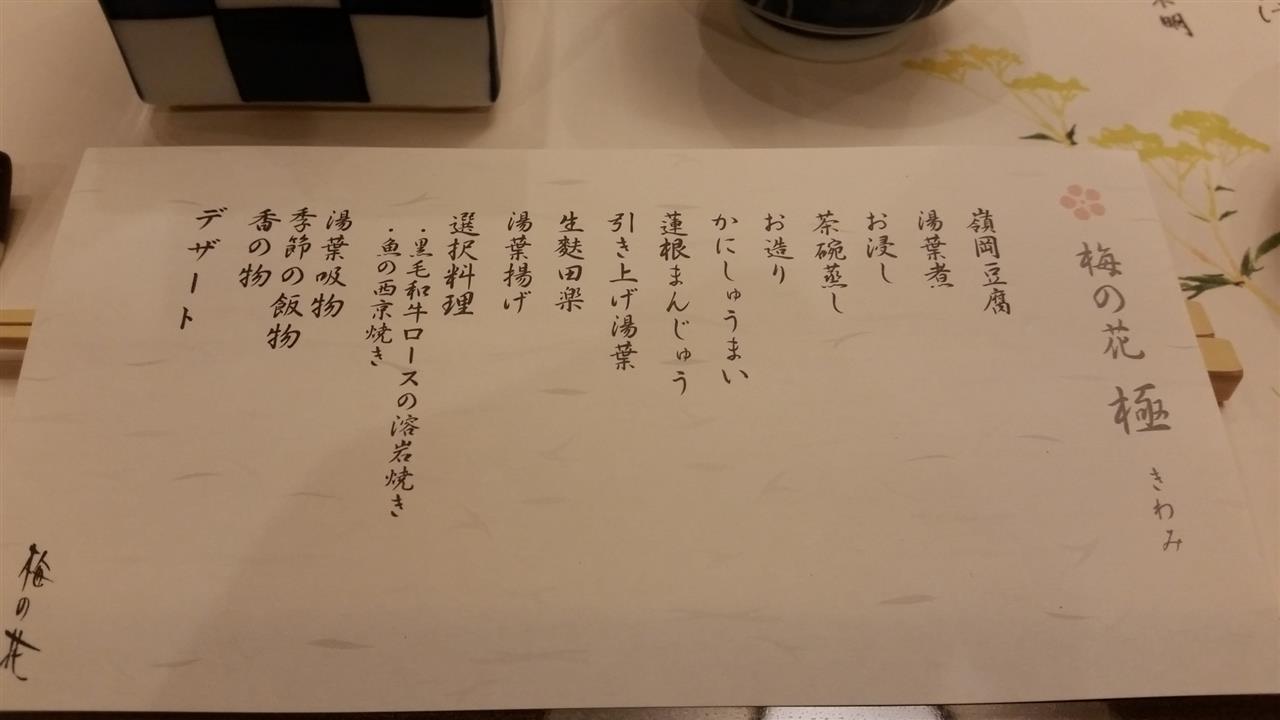 梅の花 極 きわみ
嶺岡豆腐
湯葉煮
お浸し
茶碗蒸し
お造り
かにしゅうまい
蓮根まんじゅう
引き上げ湯葉
生麩田楽
湯葉揚げ
選択料理
・黒毛和牛ロースの溶岩焼き
・魚の西京焼き
湯葉吸物
季節の飯物
香の物
デザート
梅の花